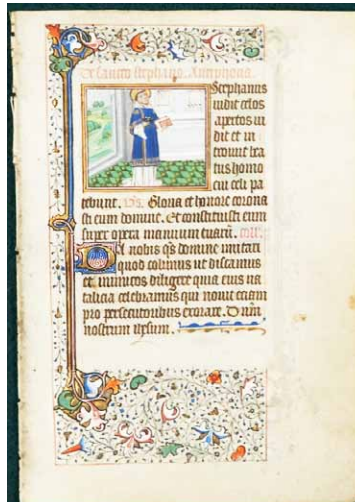 De sancto stephano. Antiphona.
Stephanus
vidit celos
apertos vi
dit et in
troivit bea
tus homo
cui celi pa
tebunt. Gloria et honore corona
sti eum domine. Et constituisti eum
super opera manuum tuarum.
Da nobis qs domine imitari
quod colimus ut discamus
et inimicos diligere quia eius na
talicia celebramus qui novit eciam
pro persecutoribus exorare. D nrm
nostrum